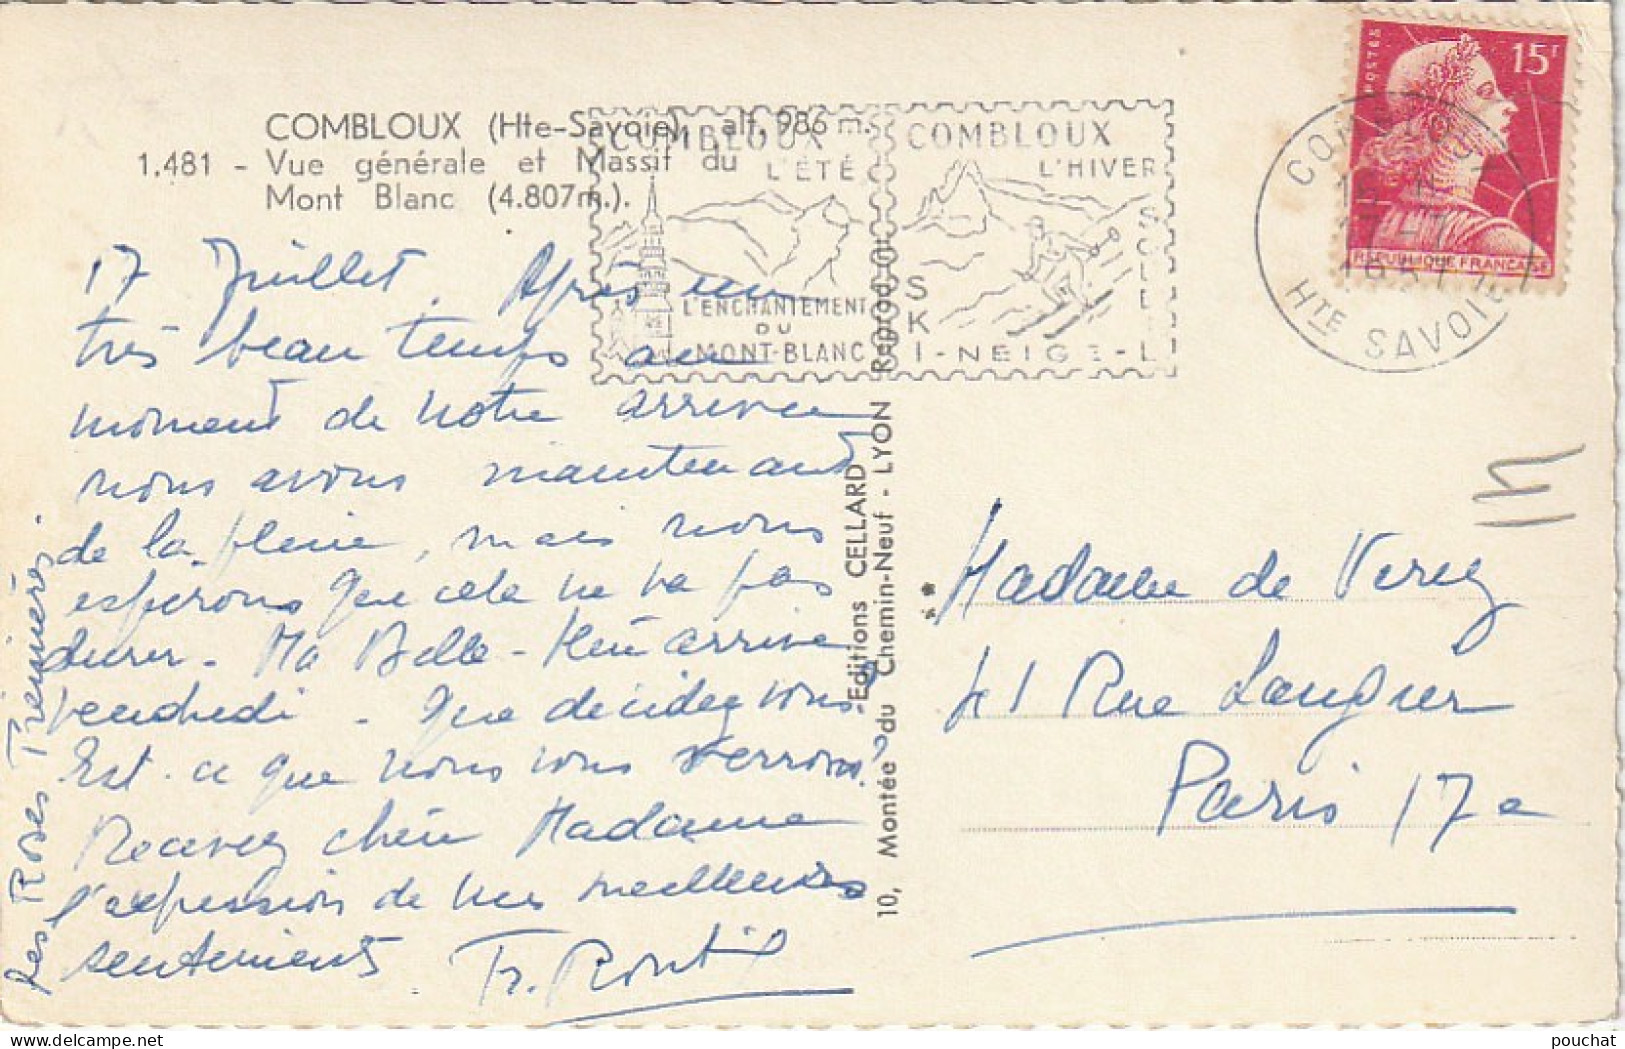 COMBLOUX (Hte-Savoie) alt. 986 m.
1.481 - Vue générale et Massif du
Mont Blanc (4.807m.).
COMBLOUX
L'ÉTÉ
L'ENCHANTEMENT
DU
MONT-BLANC
COMBLOUX
L'HIVER
SKI-NEIGE-SOLEIL
POSTES
15F
REPUBLIQUE FRANÇAISE
COMBLOUX
HTE SAVOIE
17 Juillet. Après un
très beau temps au
moment de notre arrivée
nous avons maintenant
de la pluie, mais nous
esperons que cela ne va pas
durer. Ma Belle-Mère arrive
vendredi. Que décidez vous?
Est-ce que nous vous verrons?
Recevez chère Madame
l'expression de nos meilleures
sentiments
Les Roses Trémières
Editions CELLARD
10, Montée du Chemin-Neuf - LYON
Madame de Verey
41 Rue Laugier
Paris 17e
pouchat